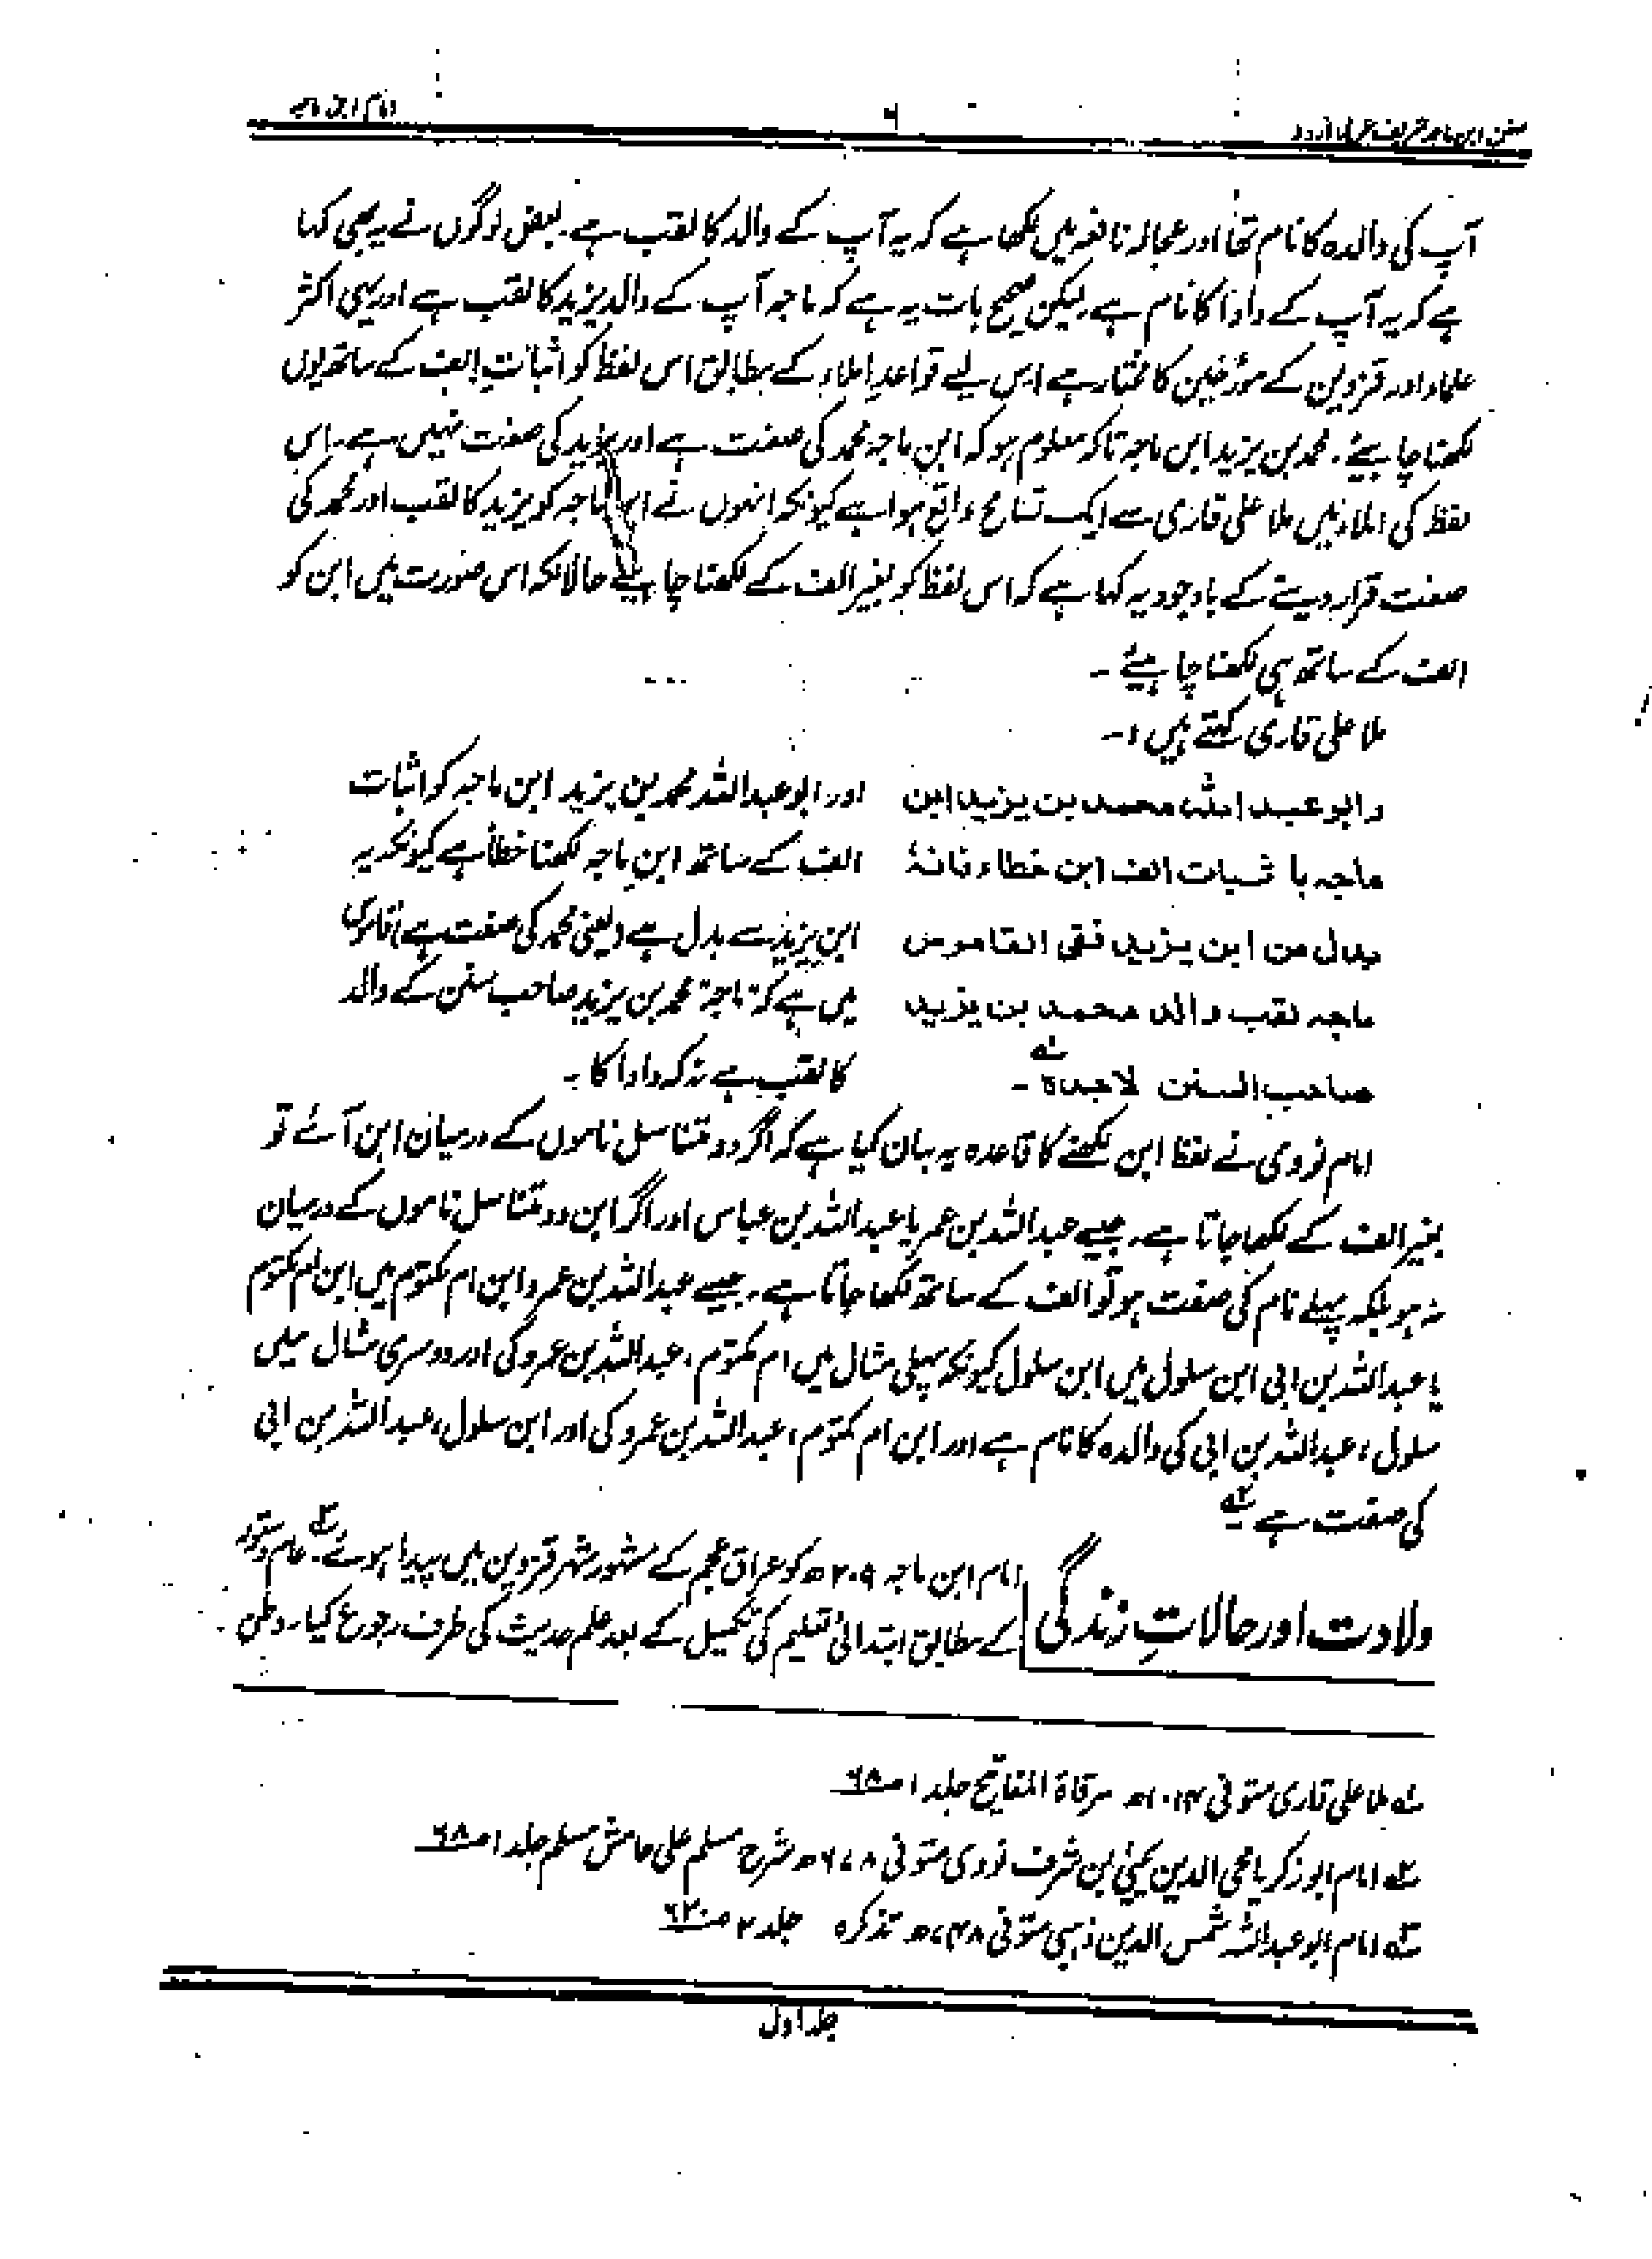 سنن ابن ماجہ شریف عربی اردو
۶
امام ابن ماجہ
آپ کی والدہ کا نام تھا اور عجالہ نافعہ میں لکھا ہے کہ یہ آپ کے والد کا لقب ہے۔ بعض لوگوں نے یہ بھی کہا
ہے کہ یہ آپ کے دادا کا نام ہے لیکن صحیح بات یہ ہے کہ ماجہ آپ کے والد یزید کا لقب ہے اور یہی اکثر
علماء اور قزوین کے مؤرخین کا مختار ہے اس لیے قواعدِ املاء کے مطابق اس لفظ کو اثباتِ الف کے ساتھ یوں
لکھنا چاہیئے۔ محمد بن یزید ابن ماجہ تاکہ معلوم ہو کہ ابن ماجہ محمد کی صفت ہے اور یزید کی صفت نہیں ہے۔ اس
لفظ کی املاء میں ملا علی قاری سے ایک تسامح واقع ہوا ہے کیونکہ انہوں نے ابن ماجہ کو یزید کا لقب اور محمد کی
صفت قرار دینے کے باوجود یہ کہا ہے کہ اس لفظ کو بغیر الف کے لکھنا چاہیئے حالانکہ اس صورت میں ابن کو
الف کے ساتھ ہی لکھنا چاہیئے ۔
ملا علی قاری لکھتے ہیں :۔
وابو عبد اللہ محمد بن یزید ابن
ماجہ با ثبات الف ابن خطاء فانہٗ
بدال من ابن یزید ففی القاموس
ماجہ لقب والد محمد بن یزید
صاحب السنن لاجدہ ۔ لہ
اور ابو عبداللہ محمد بن یزید ابن ماجہ کو اثبات
الف کے ساتھ ابن ماجہ لکھنا خطأ ہے کیونکہ یہ
ابن یزید سے بدل ہے (یعنی محمد کی صفت ہے)
میں ہے کہ "ماجہ" محمد بن یزید صاحب سنن کے والد
کا لقب ہے نہ کہ دادا کا ۔
امام نووی نے لفظ ابن لکھنے کا قاعدہ یہ بیان کیا ہے کہ اگر دو متناسل ناموں کے درمیان ابن آئے تو
بغیر الف کے لکھا جاتا ہے۔ جیسے عبداللہ بن عمر یا عبداللہ بن عباس اور اگر ابن دو متناسل ناموں کے درمیان
نہ ہو بلکہ پہلے نام کی صفت ہو تو الف کے ساتھ لکھا جاتا ہے۔ جیسے عبداللہ بن عمرو ابن ام مکتوم میں ابن ام مکتوم
یا عبداللہ بن ابی ابن سلول میں ابن سلول کیونکہ پہلی مثال میں ام مکتوم، عبداللہ بن عمرو کی اور دوسری مثال میں
سلول، عبداللہ بن ابی کی والدہ کا نام ہے اور ابن ام مکتوم، عبداللہ بن عمرو کی اور ابن سلول، عبداللہ بن ابی
کی صفت ہے ۲ے
ولادت اور حالاتِ زندگی
امام ابن ماجہ ۲۰۹ھ کو عراق عجم کے مشہور شہر قزوین میں پیدا ہوئے ۳ے۔ عام دستور
کے مطابق ابتدائی تعلیم کی تکمیل کے بعد علم حدیث کی طرف رجوع کیا۔ وطن
لہ ملا علی قاری متوفی ۱۰۱۴ھ مرقاۃ المفاتیح جلد ۱ صـ
۲ے امام ابو زکریا محی الدین یحییٰ بن شرف نووی متوفی ۶۷۸ھ شرح مسلم علی حامش مسلم جلد ۱ صـ ۶۸
۳ے امام ابو عبداللہ شمس الدین ذہبی متوفی ۷۴۸ھ تذکرہ جلد ۲ صـ
جلد اول